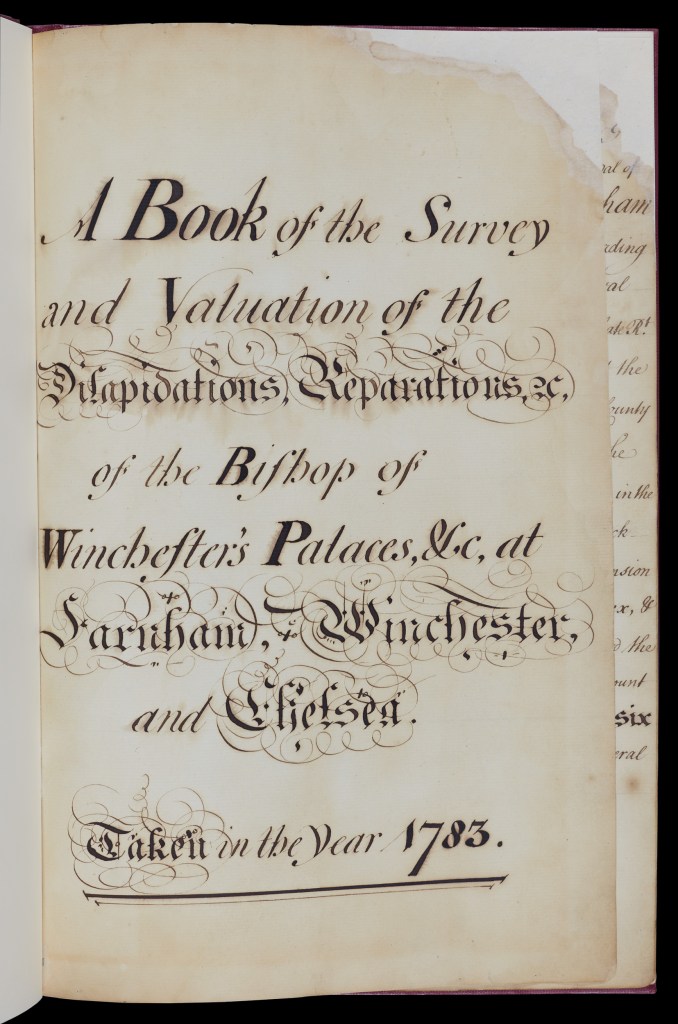 A Book of the Survey
and Valuation of the
Dilapidations, Reparations, &c,
of the Biſhop of
Wincheſter's Palaces, &c, at
Farnham, Winchester,
and Chelsea.
Taken in the Year 1783.
al of
ham
ading
ral
late Rt.
the
county
he
in the
ck
nsion
ex, &
the
ount
six
eral